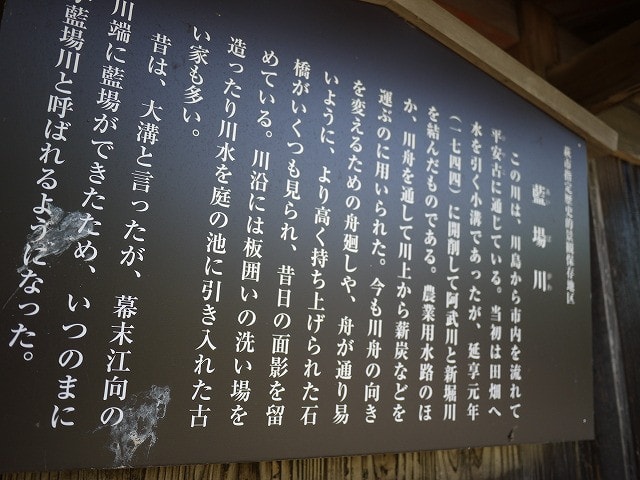 萩市指定歴史的景観保存地区
藍場川
あいばがわ
この川は、川島から市内を流れて
平安古に通じている。当初は田畑へ
水を引く小溝であったが、延享元年
(一七四四)に開削して阿武川と新堀川
を結んだものである。農業用水路のほ
か、川舟を通して川上から薪炭などを
運ぶのに用いられた。今も川舟の向き
を変えるための舟廻しや、舟が通り易
いように、より高く持ち上げられた石
橋がいくつも見られ、昔日の面影を留
めている。川沿には板囲いの洗い場を
造ったり川水を庭の池に引き入れた古
い家も多い。
昔は、大溝と言ったが、幕末江向の
川端に藍場ができたため、いつのまに
か藍場川と呼ばれるようになった。